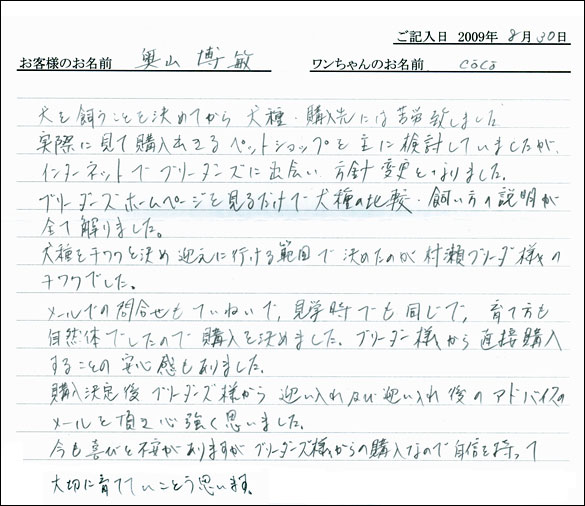 ご記入日 2009年 8月 30日
お客様のお名前 奥山 博敏 ワンちゃんのお名前 coco
犬を飼うことを決めてから 犬種・購入先には苦労致しました
実際に見て購入出きるペットショップを主に検討していましたが、
インターネットでブリーダーズに出会い 方針変更となりました。
ブリーダーズホームページを見るだけで犬種の比較・飼い方の説明が
全て解りました。
犬種をチワワと決め迎えに行ける範囲で決めたのが村瀬ブリーダー様の
チワワでした。
メールでの問合せもていねいで、見学時でも同じで、育て方も
自然体でしたので購入を決めました。ブリーダー様から直接購入
することの安心感もありました。
購入決定後 ブリーダーズ様から 迎い入れ及び迎い入れ後のアドバイスの
メールを頂き心強く思いました。
今も喜びと不安がありますがブリーダーズ様からの購入なので自信を持って
大切に育てていこうと思います。